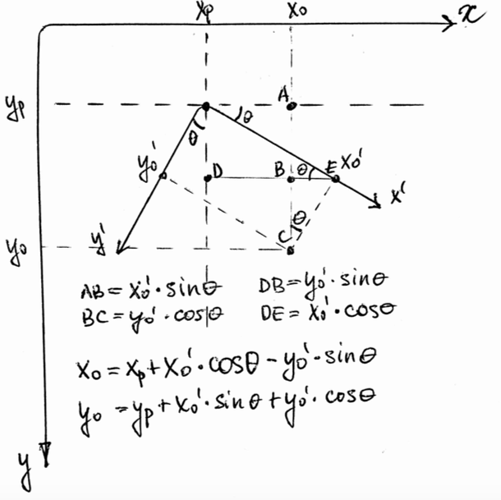 xp x₀ x
yp A
θ
θ
y₀' D B θ E x₀'
x'
θ
y₀ y' C
AB = x₀'·sinθ DB = y₀'·sinθ
BC = y₀'·cosθ DE = x₀'·cosθ
x₀ = xp + x₀'·cosθ - y₀'·sinθ
y₀ = yp + x₀'·sinθ + y₀'·cosθ
y